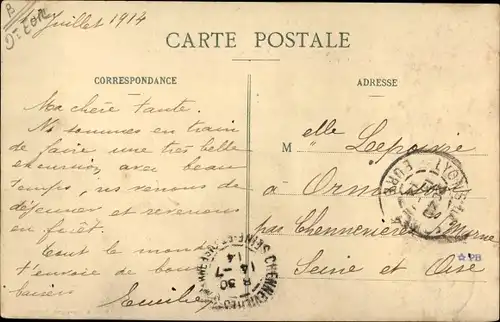 Juillet 1914
CARTE POSTALE
CORRESPONDANCE
ADRESSE
Ma chère tante.
Ns sommes en train
de faire une très belle
excursion, avec beau
temps, ns venons de
déjeuner et revenons
en forêt.
Tout le monde
t'envoie de bons
baisers
Emilie
Melle Lepoivre
à Ormesson
par Chennevières s/ Marne
Seine et Oise
CHENNEVIERES
SEINE-ET-OISE
30 -7
14
LYONS-LA-
EURE
PB